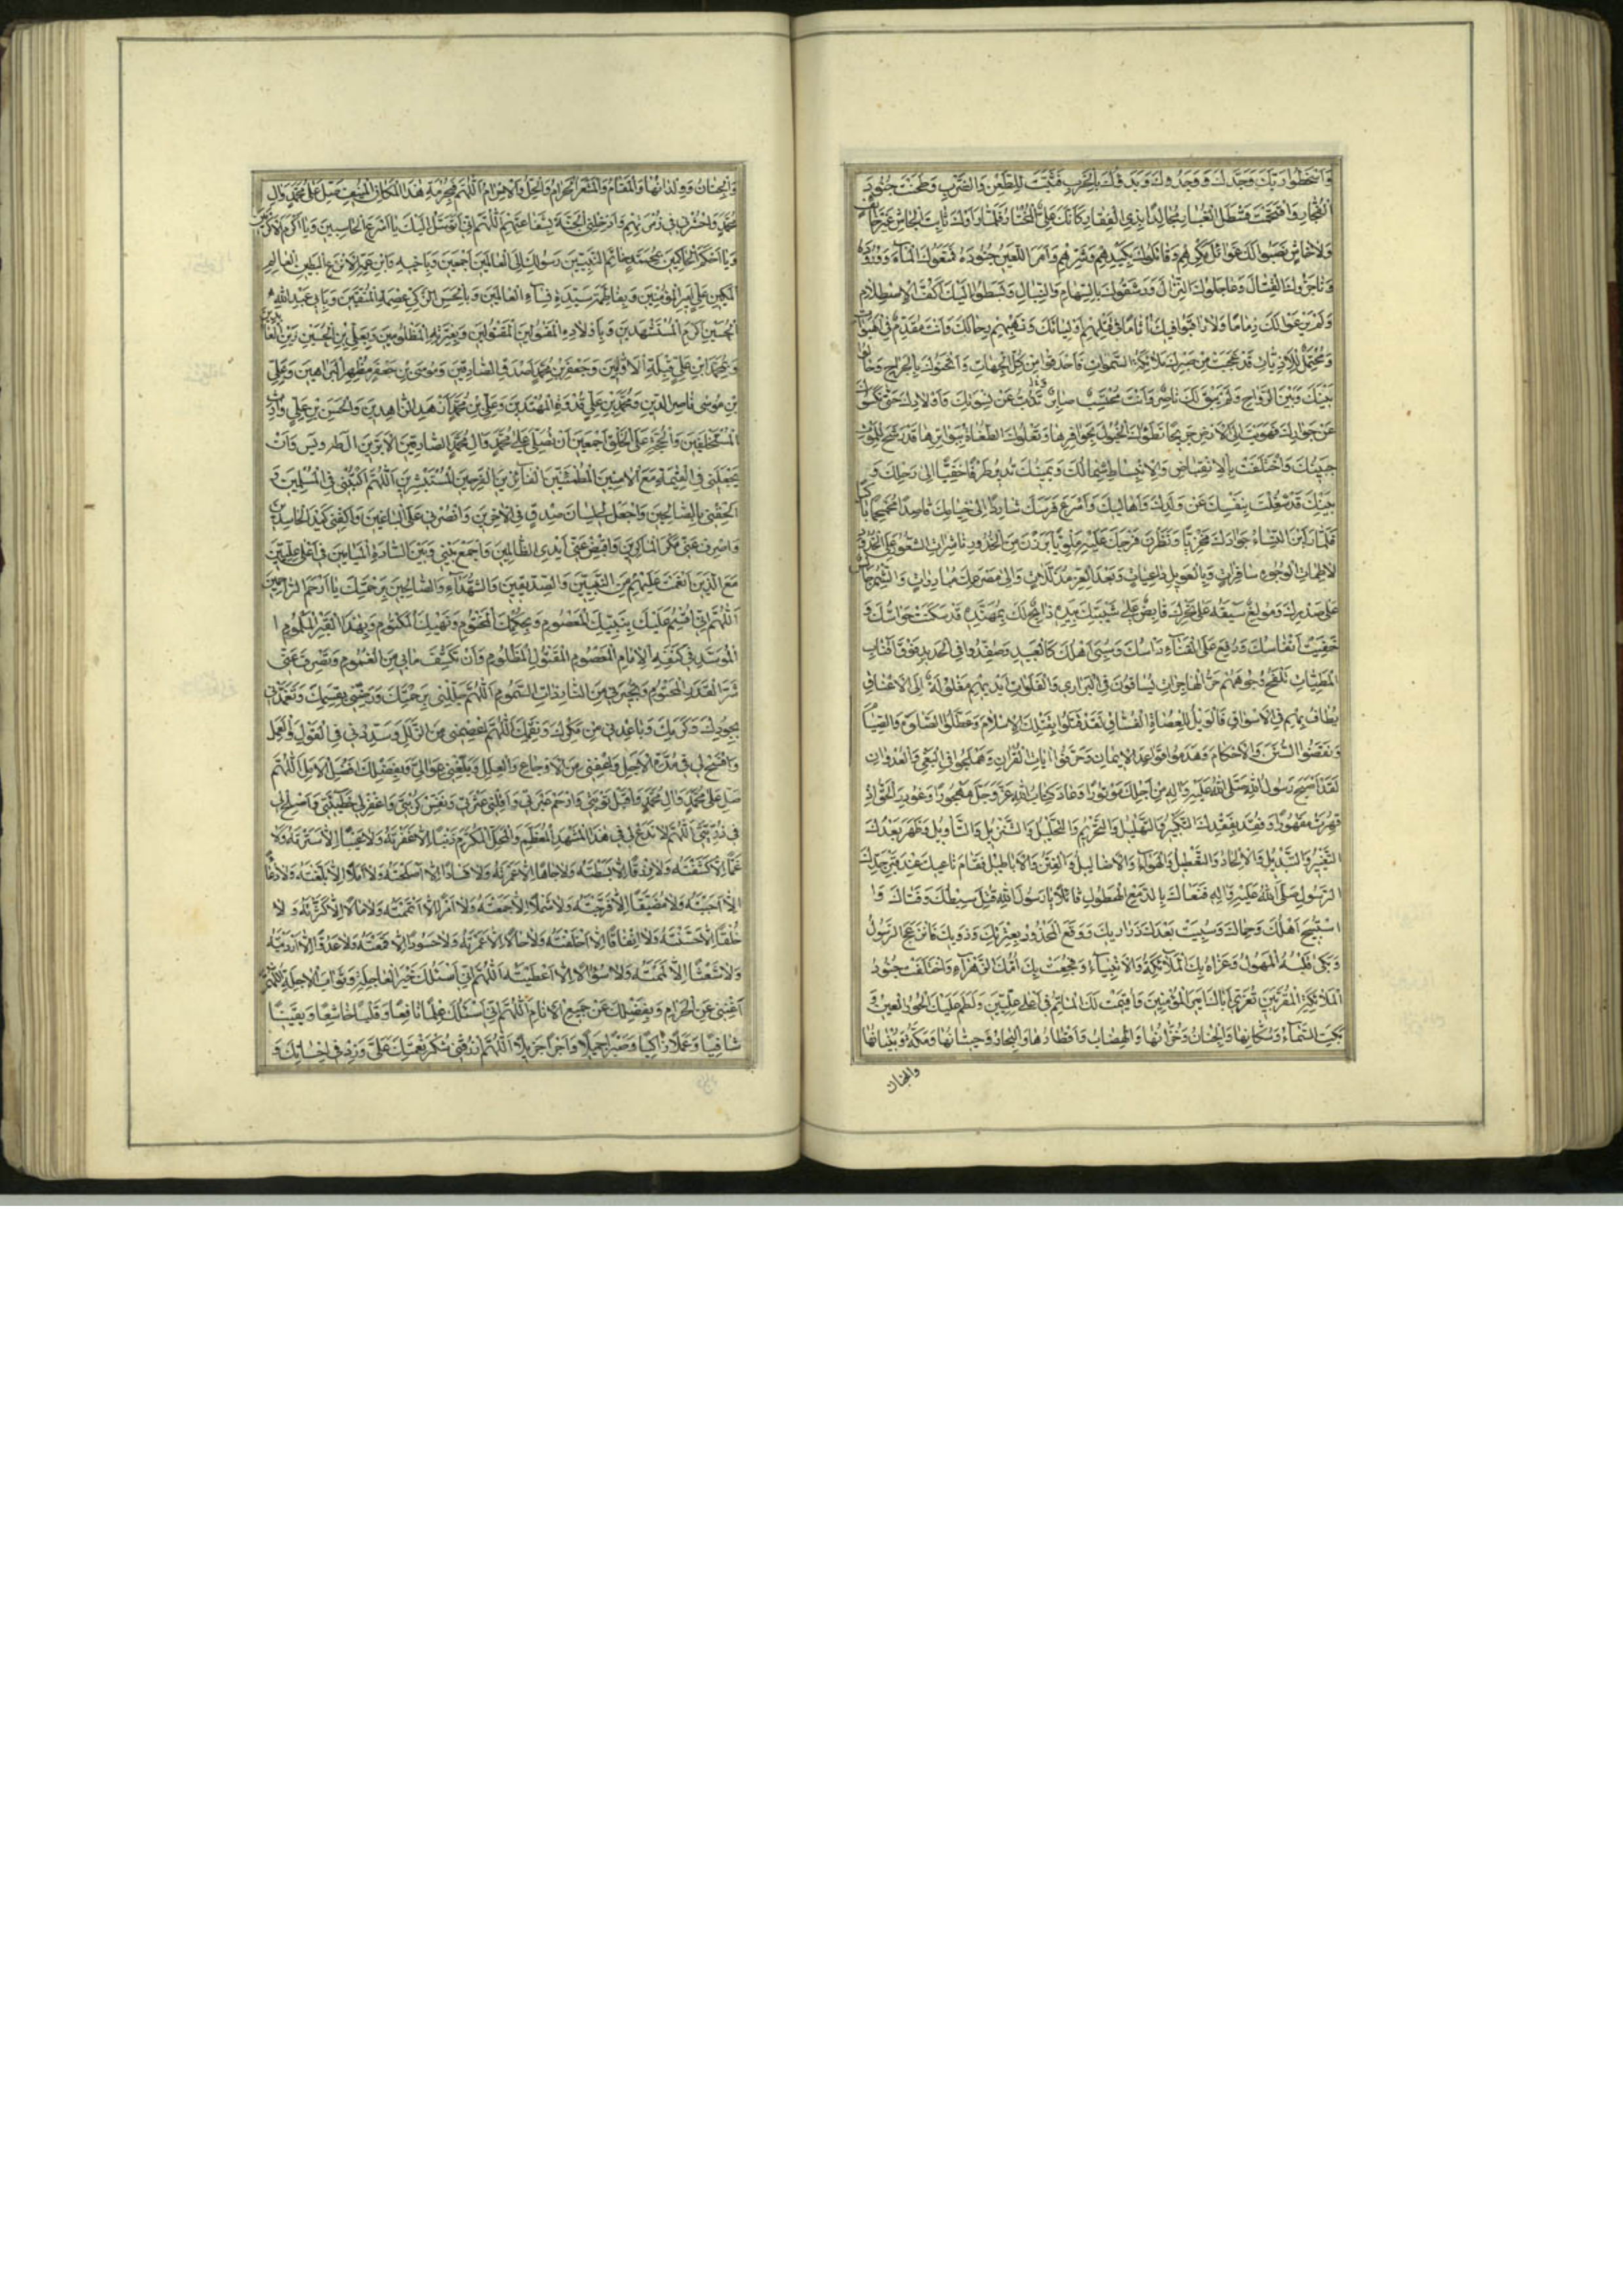 وَاَسْخَطُوا رَبَّكَ وَجَدَّكَ وَبَدَؤُكَ بِالْحَرْبِ فَثَبَتَّ لِلطَّعْنِ وَالضَّرْبِ وَطَحَنْتَ جُنُودَ
الْفُجَّارِ وَاقْتَحَمْتَ قَسْطَلَ الْغُبَارِ مُجَالِدًا بِذِي الْفِقَارِ كَاَنَّكَ عَلِيٌّ الْمُخْتَارُ فَلَمَّا رَاَوْكَ ثَابِتَ الْجَاْشِ غَيْرَ خَائِفٍ
وَلَا خَاشٍ نَصَبُوا لَكَ غَوَائِلَ مَكْرِهِمْ وَقَاتَلُوكَ بِكَيْدِهِمْ وَشَرِّهِمْ وَاَمَرَ اللَّعِينُ جُنُودَهُ فَمَنَعُوكَ الْمَاءَ وَوُرُودَهُ
وَنَاجَزُوكَ الْقِتَالَ وَعَاجَلُوكَ النِّزَالَ وَرَشَقُوكَ بِالسِّهَامِ وَالنِّبَالِ وَبَسَطُوا اِلَيْكَ اَكُفَّ الْاِصْطِلَامِ
وَلَمْ يَرْعَوْا لَكَ ذِمَامًا وَلَا رَاقَبُوا فِيكَ اَثَامًا فِي قَتْلِهِمْ اَوْلِيَائَكَ وَنَهْبِهِمْ رِحَالَكَ وَاَنْتَ مُقَدَّمٌ فِي الْهَبَوَاتِ
وَمُحْتَمِلٌ لِلْاَذِيَّاتِ قَدْ عَجِبَتْ مِنْ صَبْرِكَ مَلَائِكَةُ السَّمٰوَاتِ فَاَحْدَقُوا بِكَ مِنْ كُلِّ الْجِهَاتِ وَاَثْخَنُوكَ بِالْجِرَاحِ وَحَالُوا
بَيْنَكَ وَبَيْنَ الرَّوَاحِ وَلَمْ يَبْقَ لَكَ نَاصِرٌ وَاَنْتَ مُحْتَسِبٌ صَابِرٌ تَذُبُّ عَنْ نِسْوَتِكَ وَاَوْلَادِكَ حَتّٰى نَكَسُوكَ
عَنْ جَوَادِكَ فَهَوَيْتَ اِلَى الْاَرْضِ جَرِيحًا تَطَؤُكَ الْخُيُولُ بِحَوَافِرِهَا وَتَعْلُوكَ الطُّغَاةُ بِبَوَاتِرِهَا قَدْ رَشَحَ لِلْمَوْتِ
جَبِينُكَ وَاخْتَلَفَتْ بِالْاِنْقِبَاضِ وَالْاِنْبِسَاطِ شِمَالُكَ وَيَمِينُكَ تُدِيرُ طَرْفًا خَفِيًّا اِلٰى رَحْلِكَ وَ
بَيْتِكَ قَدْ شُغِلْتَ بِنَفْسِكَ عَنْ وُلْدِكَ وَاَهَالِيكَ وَاَسْرَعَ فَرَسُكَ شَارِدًا اِلٰى خِيَامِكَ قَاصِدًا مُحَمْحِمًا بَاكِيًا
فَلَمَّا رَاَيْنَ النِّسَاءُ جَوَادَكَ مَخْزِيًّا وَنَظَرْنَ سَرْجَكَ عَلَيْهِ مَلْوِيًّا بَرَزْنَ مِنَ الْخُدُورِ نَاشِرَاتِ الشُّعُورِ عَلَى الْخُدُودِ
لَاطِمَاتِ الْوُجُوهِ سَافِرَاتٍ وَبِالْعَوِيلِ دَاعِيَاتٍ وَبَعْدَ الْعِزِّ مُذَلَّلَاتٍ وَاِلٰى مَصْرَعِكَ مُبَادِرَاتٍ وَالشِّمْرُ جَالِسٌ
عَلٰى صَدْرِكَ وَمُولِغٌ سَيْفَهُ عَلٰى نَحْرِكَ قَابِضٌ عَلٰى شَيْبَتِكَ بِيَدِهِ ذَابِحٌ لَكَ بِمُهَنَّدِهِ قَدْ سَكَنَتْ حَوَاسُّكَ وَ
خَفِيَتْ اَنْفَاسُكَ وَرُفِعَ عَلَى الْقَنَاةِ رَاْسُكَ وَسُبِيَ اَهْلُكَ كَالْعَبِيدِ وَصُفِّدُوا فِي الْحَدِيدِ فَوْقَ اَقْتَابِ
الْمَطِيَّاتِ تَلْفَحُ وُجُوهَهُمْ حَرُّ الْهَاجِرَاتِ يُسَاقُونَ فِي الْبَرَارِي وَالْفَلَوَاتِ اَيْدِيهِمْ مَغْلُولَةٌ اِلَى الْاَعْنَاقِ
يُطَافُ بِهِمْ فِي الْاَسْوَاقِ فَالْوَيْلُ لِلْعُصَاةِ الْفُسَّاقِ لَقَدْ قَتَلُوا بِقَتْلِكَ الْاِسْلَامَ وَعَطَّلُوا الصَّلٰوةَ وَالصِّيَامَ
وَنَقَضُوا السُّنَنَ وَالْاَحْكَامَ وَهَدَمُوا قَوَاعِدَ الْاِيمَانِ وَحَرَّفُوا اٰيَاتِ الْقُرْاٰنِ وَهَمْلَجُوا فِي الْبَغْيِ وَالْعُدْوَانِ
لَقَدْ اَصْبَحَ رَسُولُ اللهِ صَلَّى اللهُ عَلَيْهِ وَاٰلِهِ مِنْ اَجْلِكَ مَوْتُورًا وَعَادَ كِتَابُ اللهِ عَزَّ وَجَلَّ مَهْجُورًا وَغُودِرَ الْحَقُّ اِذْ
قُهِرْتَ مَقْهُورًا وَفُقِدَ بِفَقْدِكَ التَّكْبِيرُ وَالتَّهْلِيلُ وَالتَّحْرِيمُ وَالتَّحْلِيلُ وَالتَّنْزِيلُ وَالتَّاْوِيلُ وَظَهَرَ بَعْدَكَ
التَّغْيِيرُ وَالتَّبْدِيلُ وَالْاِلْحَادُ وَالتَّعْطِيلُ وَالْاَهْوَاءُ وَالْاَضَالِيلُ وَالْفِتَنُ وَالْاَبَاطِيلُ فَقَامَ نَاعِيكَ عِنْدَ قَبْرِ جَدِّكَ
الرَّسُولِ صَلَّى اللهُ عَلَيْهِ وَاٰلِهِ فَنَعَاكَ بِالدَّمْعِ الْهَطُولِ قَائِلًا يَا رَسُولَ اللهِ قُتِلَ سِبْطُكَ وَفَتَاكَ وَ
اسْتُبِيحَ اَهْلُكَ وَحِمَاكَ وَسُبِيَتْ بَعْدَكَ ذَرَارِيكَ وَوَقَعَ الْمَحْذُورُ بِعِتْرَتِكَ وَذَوِيكَ فَانْزَعَجَ الرَّسُولُ
وَبَكٰى قَلْبُهُ الْمَهُولُ وَعَزَّاهُ بِكَ الْمَلَائِكَةُ وَالْاَنْبِيَاءُ وَفُجِعَتْ بِكَ اُمُّكَ الزَّهْرَاءُ وَاخْتَلَفَتْ جُنُودُ
الْمَلَائِكَةِ الْمُقَرَّبِينَ تُعَزِّي اَبَاكَ اَمِيرَ الْمُؤْمِنِينَ وَاُقِيمَتْ لَكَ الْمَاٰتِمُ فِي اَعْلٰى عِلِّيِّينَ وَلَطَمَ عَلَيْكَ الْحُورُ الْعِينُ وَ
بَكَتِ السَّمَاءُ وَسُكَّانُهَا وَالْجِنَانُ وَخُزَّانُهَا وَالْهِضَابُ وَاَقْطَارُهَا وَالْبِحَارُ وَحِيتَانُهَا وَمَكَّةُ وَبُنْيَانُهَا
والجنان
وَالْجِنَانُ وَوِلْدَانُهَا وَالْمَقَامُ وَالْمَشْعَرُ الْحَرَامُ وَالْحِلُّ وَالْاِحْرَامُ اَللّٰهُمَّ فَبِحُرْمَةِ هٰذَا الْمَكَانِ الْمُنِيفِ صَلِّ عَلٰى مُحَمَّدٍ وَاٰلِ
مُحَمَّدٍ وَاحْشُرْنِي فِي زُمْرَتِهِمْ وَاَدْخِلْنِي الْجَنَّةَ بِشَفَاعَتِهِمْ اَللّٰهُمَّ اِنِّي اَتَوَسَّلُ اِلَيْكَ يَا اَسْرَعَ الْحَاسِبِينَ وَيَا اَكْرَمَ الْاَكْرَمِينَ
وَيَا اَحْكَمَ الْحَاكِمِينَ بِمُحَمَّدٍ خَاتَمِ النَّبِيِّينَ رَسُولِكَ اِلَى الْعَالَمِينَ اَجْمَعِينَ وَبِاَخِيهِ وَابْنِ عَمِّهِ الْاَنْزَعِ الْبَطِينِ الْعَالِمِ
الْمَكِينِ عَلِيٍّ اَمِيرِ الْمُؤْمِنِينَ وَبِفَاطِمَةَ سَيِّدَةِ نِسَاءِ الْعَالَمِينَ وَبِالْحَسَنِ الزَّكِيِّ عِصْمَةِ الْمُتَّقِينَ وَبِاَبِي عَبْدِ اللهِ
الْحُسَيْنِ اَكْرَمِ الْمُسْتَشْهَدِينَ وَبِاَوْلَادِهِ الْمَقْتُولِينَ وَبِعِتْرَتِهِ الْمَظْلُومِينَ وَبِعَلِيِّ بْنِ الْحُسَيْنِ زَيْنِ الْعَابِدِينَ
وَبِمُحَمَّدِ ابْنِ عَلِيٍّ قِبْلَةِ الْاَوَّابِينَ وَجَعْفَرِ بْنِ مُحَمَّدٍ اَصْدَقِ الصَّادِقِينَ وَمُوسَى بْنِ جَعْفَرٍ مُظْهِرِ الْبَرَاهِينِ وَعَلِيِّ
بْنِ مُوسٰى نَاصِرِ الدِّينِ وَمُحَمَّدِ بْنِ عَلِيٍّ قُدْوَةِ الْمُهْتَدِينَ وَعَلِيِّ بْنِ مُحَمَّدٍ اَزْهَدِ الزَّاهِدِينَ وَالْحَسَنِ بْنِ عَلِيٍّ وَارِثِ
الْمُسْتَخْلَفِينَ وَالْحُجَّةِ عَلَى الْخَلْقِ اَجْمَعِينَ اَنْ تُصَلِّيَ عَلٰى مُحَمَّدٍ وَاٰلِ مُحَمَّدٍ الصَّادِقِينَ الْاَبَرِّينَ اٰلِ طٰهٰ وَيٰسٓ وَاَنْ
تَجْعَلَنِي فِي الْقِيٰمَةِ مَعَ الْاٰمِنِينَ الْمُطْمَئِنِّينَ الْفَائِزِينَ الْفَرِحِينَ الْمُسْتَبْشِرِينَ اَللّٰهُمَّ اكْتُبْنِي فِي الْمُسْلِمِينَ وَ
اَلْحِقْنِي بِالصَّالِحِينَ وَاجْعَلْ لِي لِسَانَ صِدْقٍ فِي الْاٰخِرِينَ وَانْصُرْنِي عَلَى الْبَاغِينَ وَاكْفِنِي كَيْدَ الْحَاسِدِينَ
وَاصْرِفْ عَنِّي مَكْرَ الْمَاكِرِينَ وَاقْبِضْ عَنِّي اَيْدِيَ الظَّالِمِينَ وَاجْمَعْ بَيْنِي وَبَيْنَ السَّادَةِ الْمَيَامِينِ فِي اَعْلٰى عِلِّيِّينَ
مَعَ الَّذِينَ اَنْعَمْتَ عَلَيْهِمْ مِنَ النَّبِيِّينَ وَالصِّدِّيقِينَ وَالشُّهَدَاءِ وَالصَّالِحِينَ بِرَحْمَتِكَ يَا اَرْحَمَ الرَّاحِمِينَ
اَللّٰهُمَّ اِنِّي اُقْسِمُ عَلَيْكَ بِنَبِيِّكَ الْمَعْصُومِ وَبِحُكْمِكَ الْمَحْتُومِ وَنَهْيِكَ الْمَكْتُومِ وَبِهٰذَا الْقَبْرِ الْمَلْمُومِ
الْمُوَسَّدِ فِي كَنَفِهِ الْاِمَامُ الْمَعْصُومُ الْمَقْتُولُ الْمَظْلُومُ وَاَنْ تَكْشِفَ مَا بِي مِنَ الْغُمُومِ وَتَصْرِفَ عَنِّي
شَرَّ الْقَدَرِ الْمَحْتُومِ وَتُجِيرَنِي مِنَ النَّارِ ذَاتِ السَّمُومِ اَللّٰهُمَّ جَلِّلْنِي بِرَحْمَتِكَ وَرَضِّنِي بِقِسْمِكَ وَتَغَمَّدْنِي
بِجُودِكَ وَكَرَمِكَ وَبَاعِدْنِي مِنْ مَكْرِكَ وَنِقْمَتِكَ اَللّٰهُمَّ اعْصِمْنِي مِنَ الزَّلَلِ وَسَدِّدْنِي فِي الْقَوْلِ وَالْعَمَلِ
وَافْسَحْ لِي فِي مُدَّةِ الْاَجَلِ وَاعْفِنِي مِنَ الْاَوْجَاعِ وَالْعِلَلِ وَبَلِّغْنِي بِمَوَالِيَّ وَبِفَضْلِكَ اَفْضَلَ الْاَمَلِ اَللّٰهُمَّ
صَلِّ عَلٰى مُحَمَّدٍ وَاٰلِ مُحَمَّدٍ وَاقْبَلْ تَوْبَتِي وَارْحَمْ عَبْرَتِي وَاَقِلْنِي عَثْرَتِي وَنَفِّسْ كُرْبَتِي وَاغْفِرْ لِي خَطِيئَتِي وَاَصْلِحْ لِي
فِي ذُرِّيَّتِي اَللّٰهُمَّ لَا تَدَعْ لِي فِي هٰذَا الْمَشْهَدِ الْمُعَظَّمِ وَالْمَحَلِّ الْمُكَرَّمِ ذَنْبًا اِلَّا غَفَرْتَهُ وَلَا عَيْبًا اِلَّا سَتَرْتَهُ وَلَا
غَمًّا اِلَّا كَشَفْتَهُ وَلَا رِزْقًا اِلَّا بَسَطْتَهُ وَلَا جَاهًا اِلَّا عَمَرْتَهُ وَلَا فَسَادًا اِلَّا اَصْلَحْتَهُ وَلَا اَمَلًا اِلَّا بَلَّغْتَهُ وَلَا دُعَاءً
اِلَّا اَجَبْتَهُ وَلَا مُضَيَّقًا اِلَّا فَرَّجْتَهُ وَلَا شَمْلًا اِلَّا جَمَعْتَهُ وَلَا اَمْرًا اِلَّا اَتْمَمْتَهُ وَلَا مَالًا اِلَّا كَثَّرْتَهُ وَلَا
خُلُقًا اِلَّا حَسَّنْتَهُ وَلَا اِنْفَاقًا اِلَّا اَخْلَفْتَهُ وَلَا حَالًا اِلَّا عَمَرْتَهُ وَلَا حَسُودًا اِلَّا قَمَعْتَهُ وَلَا عَدُوًّا اِلَّا اَرْدَيْتَهُ
وَلَا شَعْثًا اِلَّا لَمَمْتَهُ وَلَا سُؤَالًا اِلَّا اَعْطَيْتَهُ اَللّٰهُمَّ اِنِّي اَسْئَلُكَ خَيْرَ الْعَاجِلَةِ وَثَوَابَ الْاٰجِلَةِ اَللّٰهُمَّ
اَغْنِنِي عَنِ الْحَرَامِ وَبِفَضْلِكَ عَنْ جَمِيعِ الْاَنَامِ اَللّٰهُمَّ اِنِّي اَسْئَلُكَ عِلْمًا نَافِعًا وَقَلْبًا خَاشِعًا وَيَقِينًا
شَافِيًا وَعَمَلًا زَاكِيًا وَصَبْرًا جَمِيلًا وَاَجْرًا جَزِيلًا اَللّٰهُمَّ ارْزُقْنِي شُكْرَ نِعْمَتِكَ عَلَيَّ وَزِدْ فِي اِحْسَانِكَ وَ